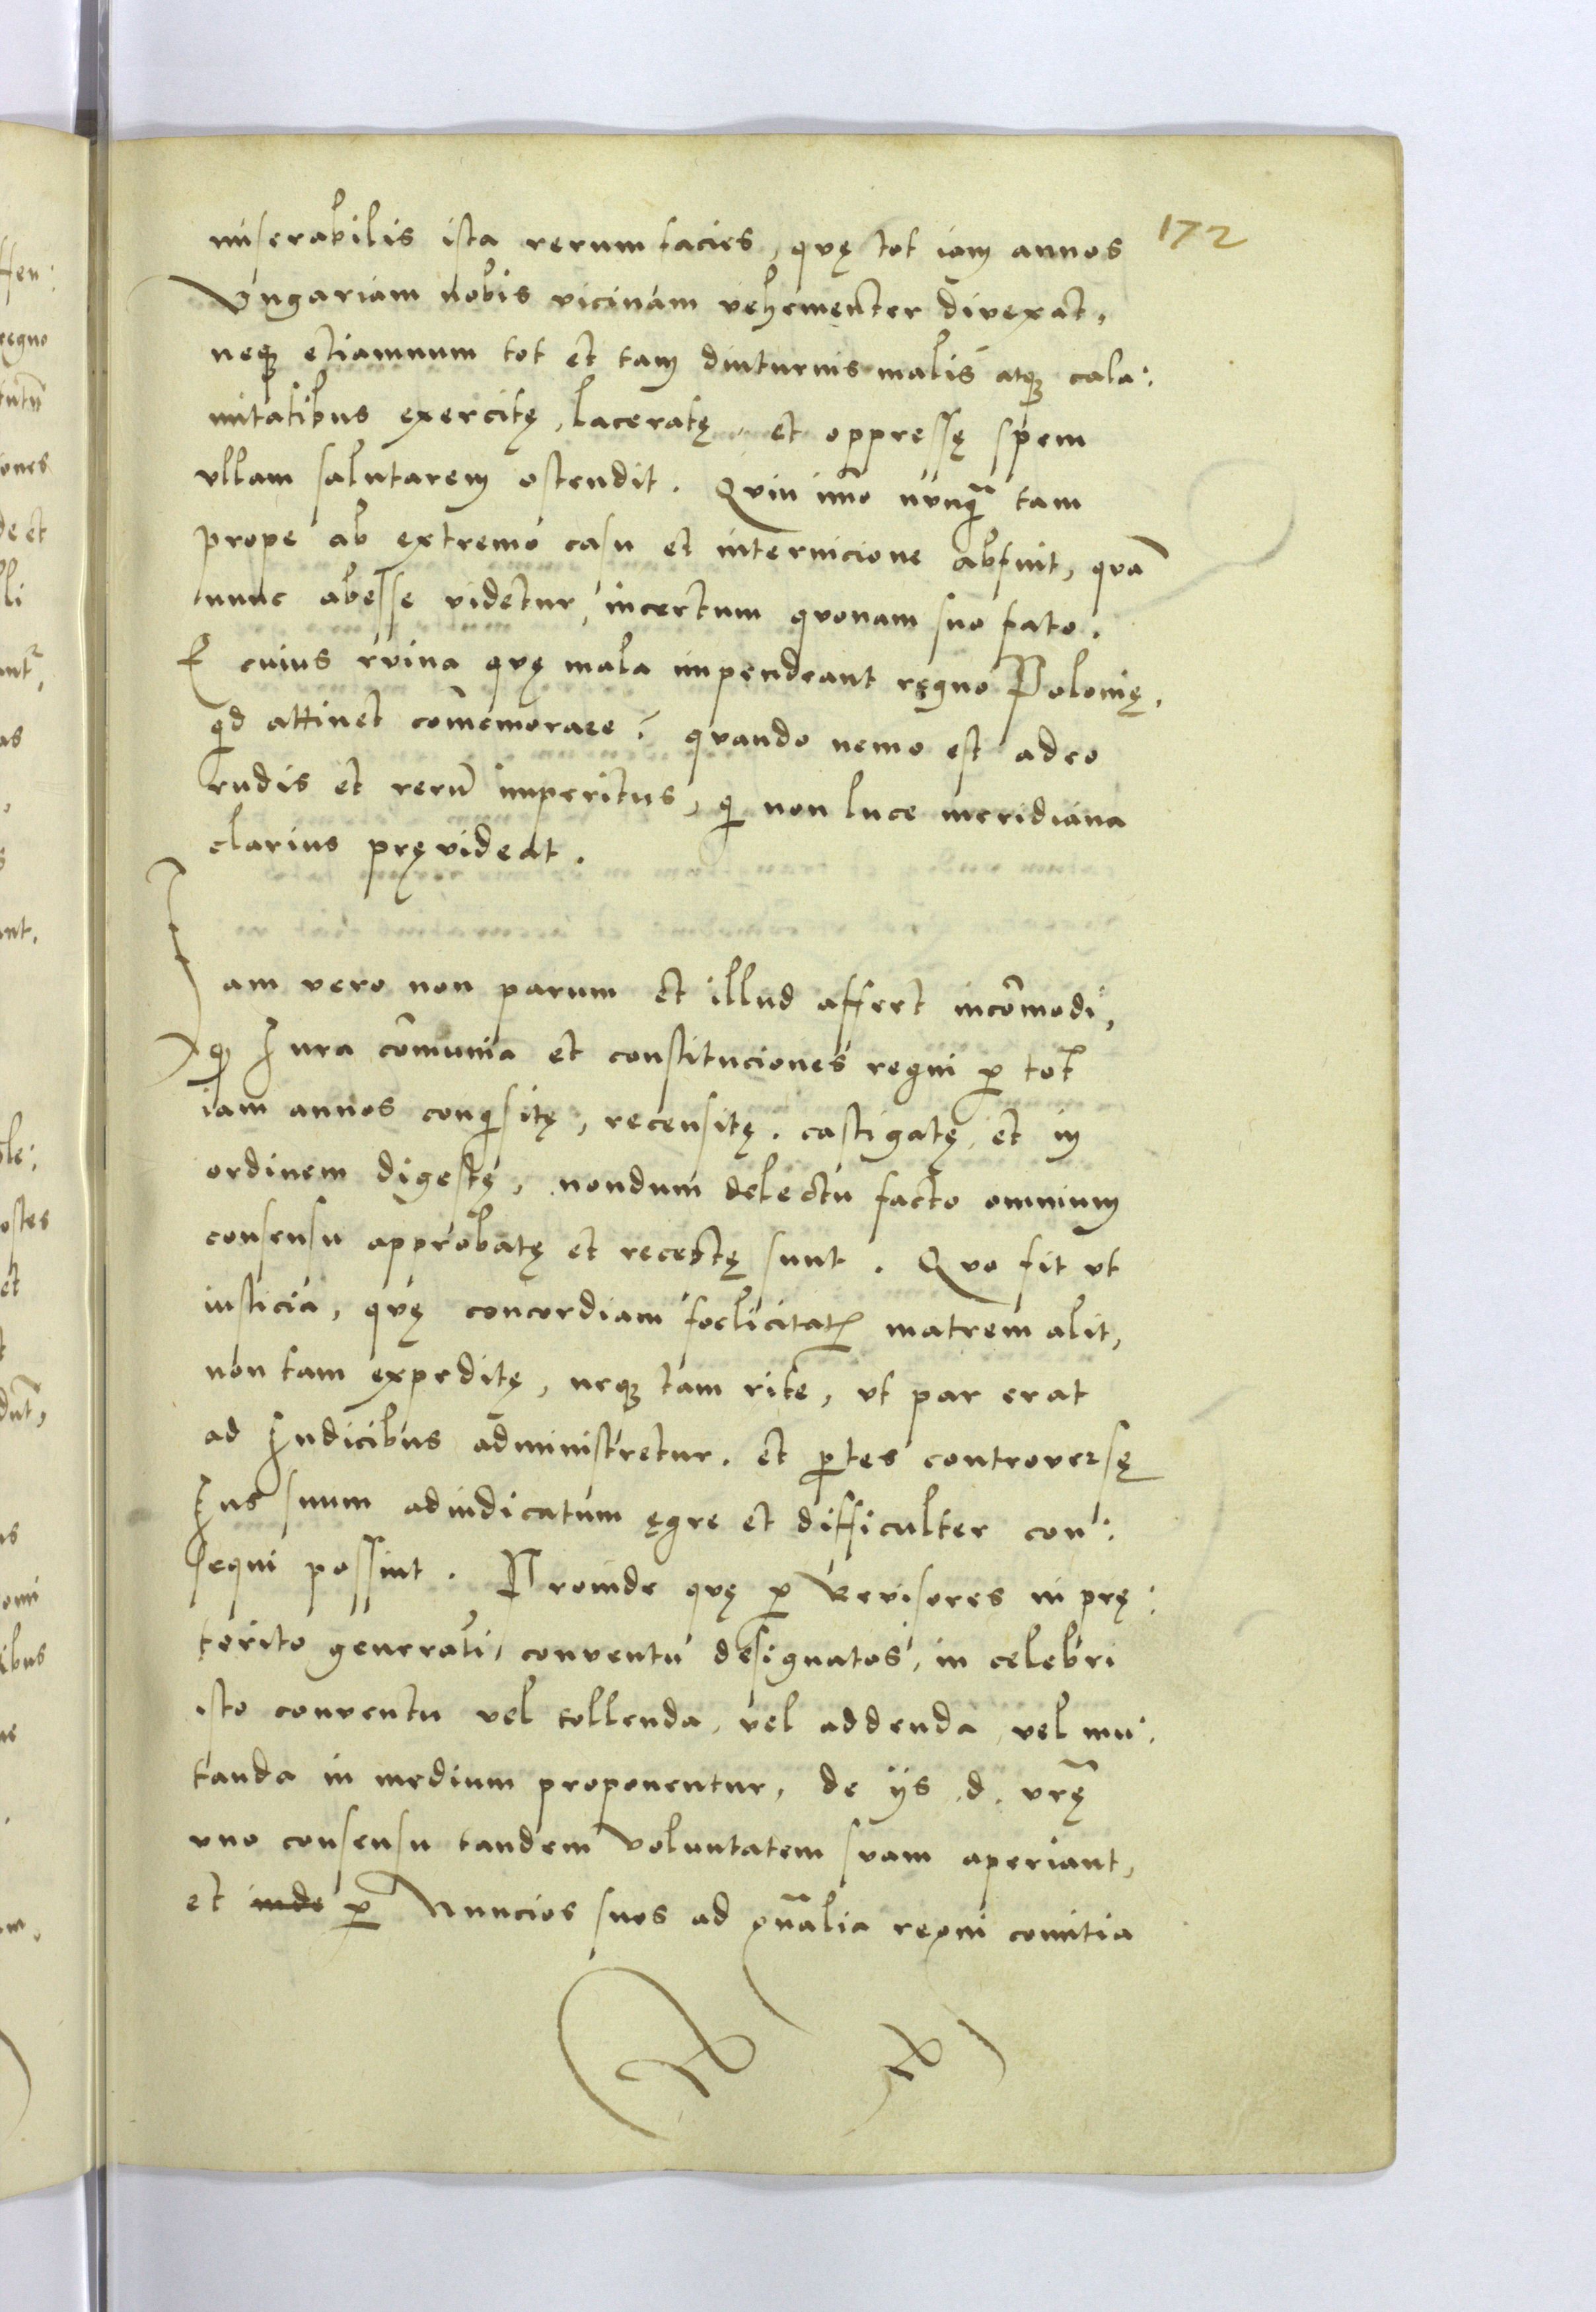 172
miserabilis ista rerum facies, quę tot iam annos
Vngariam nobis vicinam vehementer divexat,
neqꝫ etiamnum tot et tam diuturnis malis atqꝫ cala:
mitatibus exercitę, laceratę et oppressę spem
vllam salutarem ostendit. Quin im̃o nunq̃ tam
prope ab extremo casu et internicione abfuit, quã
nunc abesse videtur, incertum quonam suo fato.
E cuius ruina quę mala impendeant regno Polonię,
qd attinet com̃emorare? quando nemo est adeo
rudis et rerũ imperitus, qi non luce meridiana
clarius pręvideat.
Iam vero non parum et illud affert incõmodi,
ꝙ Iura cõmunia et constituciones regni ꝑ tot
iam annos conqisitę, recensitę, castigatę, et in
ordinem digestę, nondum delectu facto omnium
consensu approbatę et receptę sunt. Quo fit vt
iusticia, quę concordiam foelicitatꝭ matrem alit,
non tam expeditę, neqꝫ tam rite, vt par erat
ad Iudicibus administretur. et ꝑtes controversę
Ius suum adiudicatum ęgre et difficulter con:
sequi possint. Proinde quę ꝑ Revisores in prę:
terito generali conventu designatos, in celebri
isto conventu vel tollenda, vel addenda, vel mu:
tanda in medium proponentur, de ijs .d. vrę̃
vno consensu tandem voluntatem suam aperiant,
et inde ꝑ Nuncios suos ad gñalia regni comitia